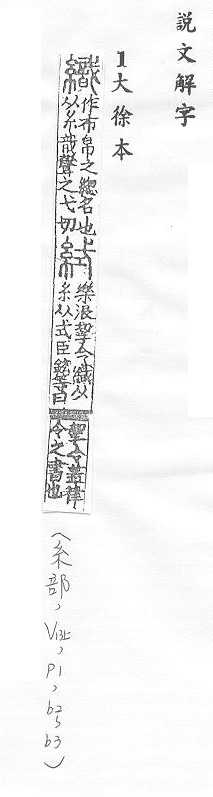 説文解字
1大徐本
織
作布帛之緫名也
从糸戠聲之弋切
樂浪挈令織从
糸从式臣鉉等曰
挈令蓋律
令之書也
(糸部, V13上, P1, b2〜b3)